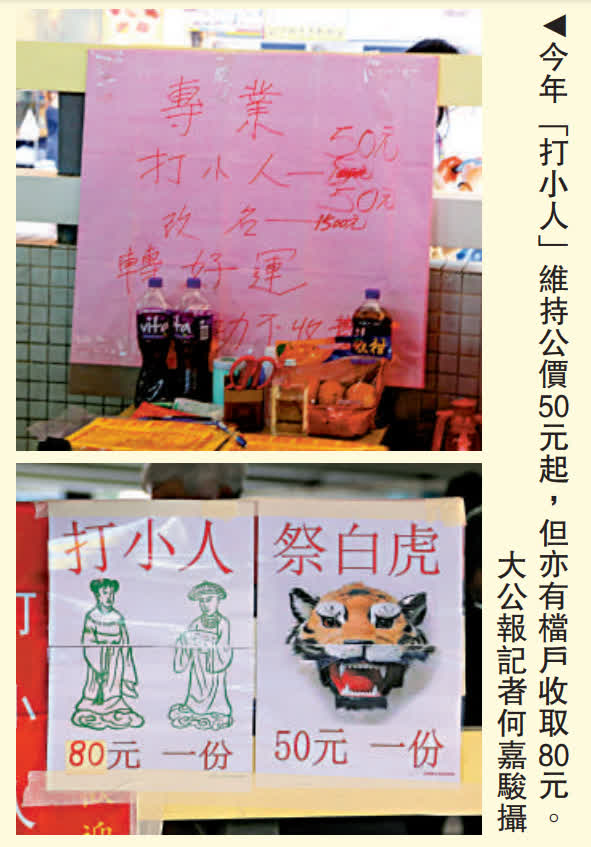 ◀今年「打小人」維持公價50元起，但亦有檔戶收取80元。
大公報記者何嘉駿攝
專業
50元
打小人—
50元
改名—1500元
轉好運
不收
vita
vita
打小人
80元 一份
祭白虎
50元 一份
小人
歡迎